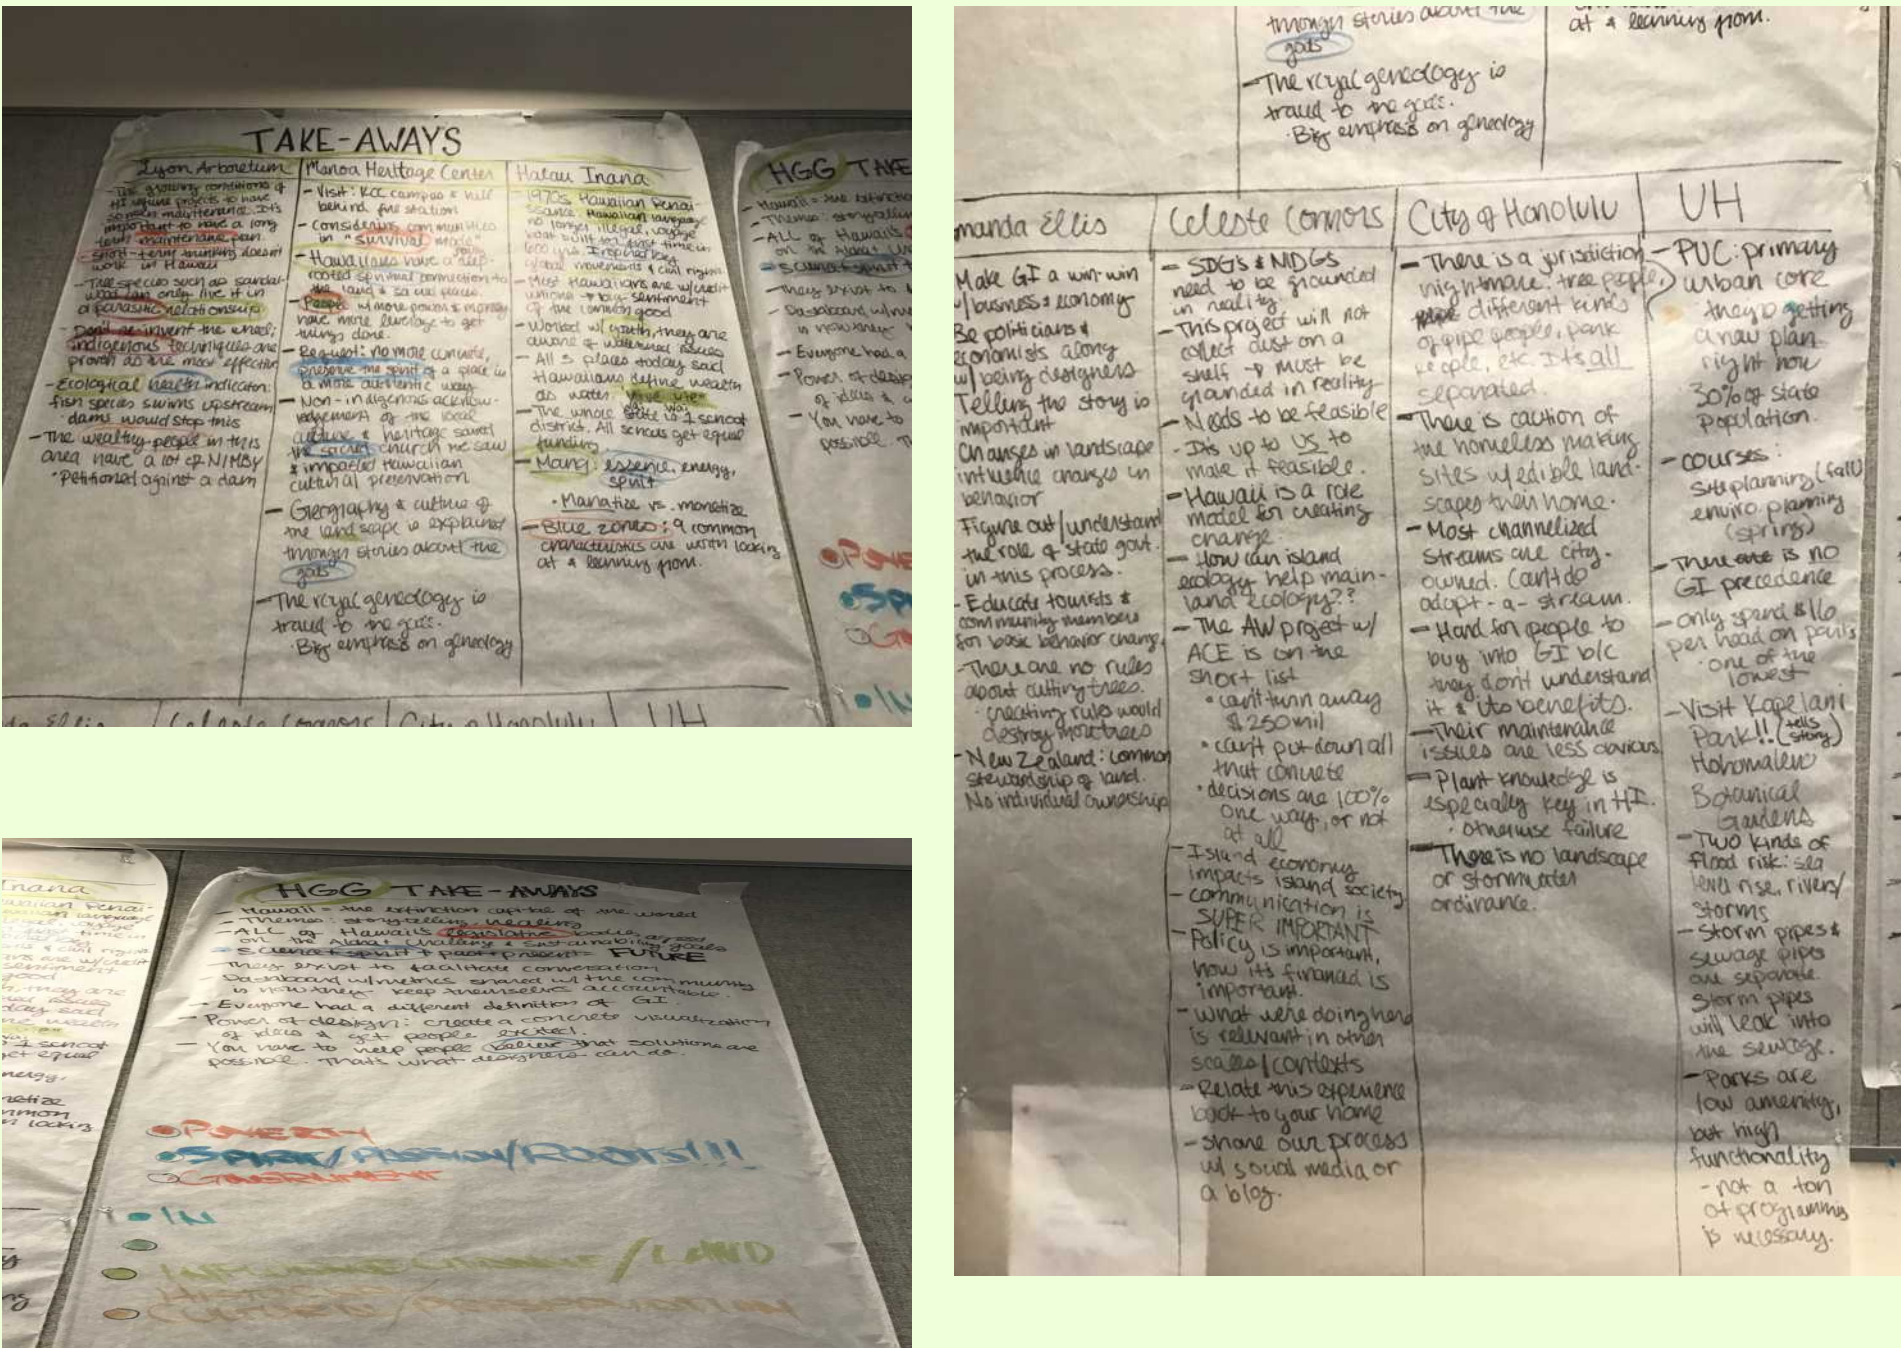 TAKE-AWAYS
Lyon Arboretum
- The growing conditions of
HI require projects to have
so much maintenance. It's
important to have a long
term maintenance plan.
- Short-term thinking doesn't
work in Hawaii
- Tree species such as sandal-
wood can only live if in
a parasitic relationship.
- Don't re-invent the wheel;
indigenous techniques are
proven as the most effective
- Ecological health indicator:
fish species swims upstream
· dams would stop this
- The wealthy people in this
area have a lot of NIMBY
· Petitioned against a dam
Manoa Heritage Center
- Visit: KCC campus & hill
behind fire station
- Considering communities
in "survival mode"
- Hawaiians have a deep-
rooted spiritual connection to
the land & sacred places
- People w/ more power & money
have more leverage to get
things done.
- Request: no more concrete,
preserve the spirit of a place in
a more authentic way
- Non-indigenous acknow-
ledgement of the local
culture & heritage saved
the sacred church we saw
& impacted Hawaiian
cultural preservation
- Geography & culture of
the landscape is explained
through stories about the
gods
- The royal geneology is
traced to the gods.
· Big emphasis on geneology
Halau Inana
- 1970s Hawaiian Renai-
ssance. Hawaiian language
no longer illegal, voyage
boat built for first time in
600 yrs. Inspired by
global movements & civil rights
- Most Hawaiians are w/ credit
unions → big sentiment
of the common good
- Worked w/ youth, they are
aware of watershed issues
- All 3 places today said
Hawaiians define wealth
as water.
- The whole state is 1 school
district. All schools get equal
funding
- Mana: essence, energy,
spirit
· Manatize vs. monetize
- Blue zones: 9 common
characteristics are worth looking
at & learning from.
HGG TAKE-AWAYS
- Hawaii = the extinction capital of the world
- Themes: storytelling, healing
- ALL of Hawaii's legislative bodies agreed
on the Aloha+ Challenge & sustainability goals
- Science + spirit + past + present = FUTURE
- They exist to facilitate conversation
- Dashboard w/ metrics shared w/ the community
is how they keep themselves accountable.
- Everyone had a different definition of GI.
- Power of design: create a concrete visualization
of ideas & get people excited.
- You have to help people believe that solutions are
possible. That's what designers can do.
POVERTY
SPIRIT/PASSION/ROOTS!!!
GOVERNMENT
manda Ellis
Make GI a win-win
w/ business & economy
Be politicians &
economists along
w/ being designers
Telling the story is
important
Changes in landscape
influence changes in
behavior
Figure out/understand
the role of state govt.
in this process.
- Educate tourists &
community members
for basic behavior change.
- There are no rules
about cutting trees.
· creating rules would
destroy more trees
- New Zealand: common
stewardship of land.
No individual ownership
Celeste Connors
- SDGs & MDGs
need to be grounded
in reality
- This project will not
collect dust on a
shelf → must be
grounded in reality
- Needs to be feasible
- It's up to US to
make it feasible.
- Hawaii is a role
model for creating
change.
- How can island
ecology help main-
land ecology??
- The AW project w/
ACE is on the
short list
• can't turn away
$250mil
• can't put down all
that concrete
• decisions are 100%
one way, or not
at all
- Island economy
impacts island society
- communication is
SUPER IMPORTANT
- Policy is important,
how it's financed is
important.
- What we're doing here
is relevant in other
scales/contexts
- Relate this experience
back to your home
- share our process
w/ social media or
a blog.
City of Honolulu
- There is a jurisdiction
nightmare: tree people,
different kinds
of pipe people, park
people, etc. It's all
separated.
- There is caution of
the homeless making
sites w/ edible land-
scapes their home.
- Most channelized
streams are city-
owned. Can't do
adopt-a-stream.
- Hard for people to
buy into GI b/c
they don't understand
it & its benefits.
- Their maintenance
issues are less obvious
- Plant knowledge is
especially key in HI.
· otherwise failure
- There is no landscape
or stormwater
ordinance.
UH
- PUC: primary
urban core
· they're getting
a new plan
right now
· 30% of state
population.
- courses:
site planning (fall)
enviro. planning
(spring)
- There is no
GI precedence
- only spend $16
per head on parks
· one of the
lowest
- Visit Kapelani
Park!! (tells story)
Hohomalew
Botanical
Gardens
- Two kinds of
flood risk: sea
level rise, rivers/
storms
- Storm pipes &
sewage pipes
are separate.
Storm pipes
will leak into
the sewage.
- Parks are
low amenity,
but high
functionality
- not a ton
of programming
is necessary.